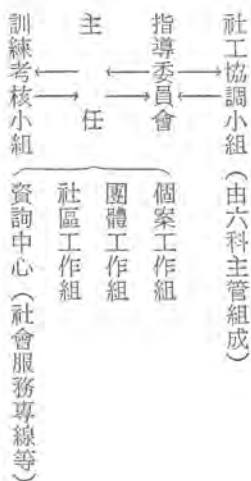 社工協調小組（由六科主管組成）
指導委員會
主任
訓練考核小組
個案工作組
團體工作組
社區工作組
資詢中心（社會服務專線等）